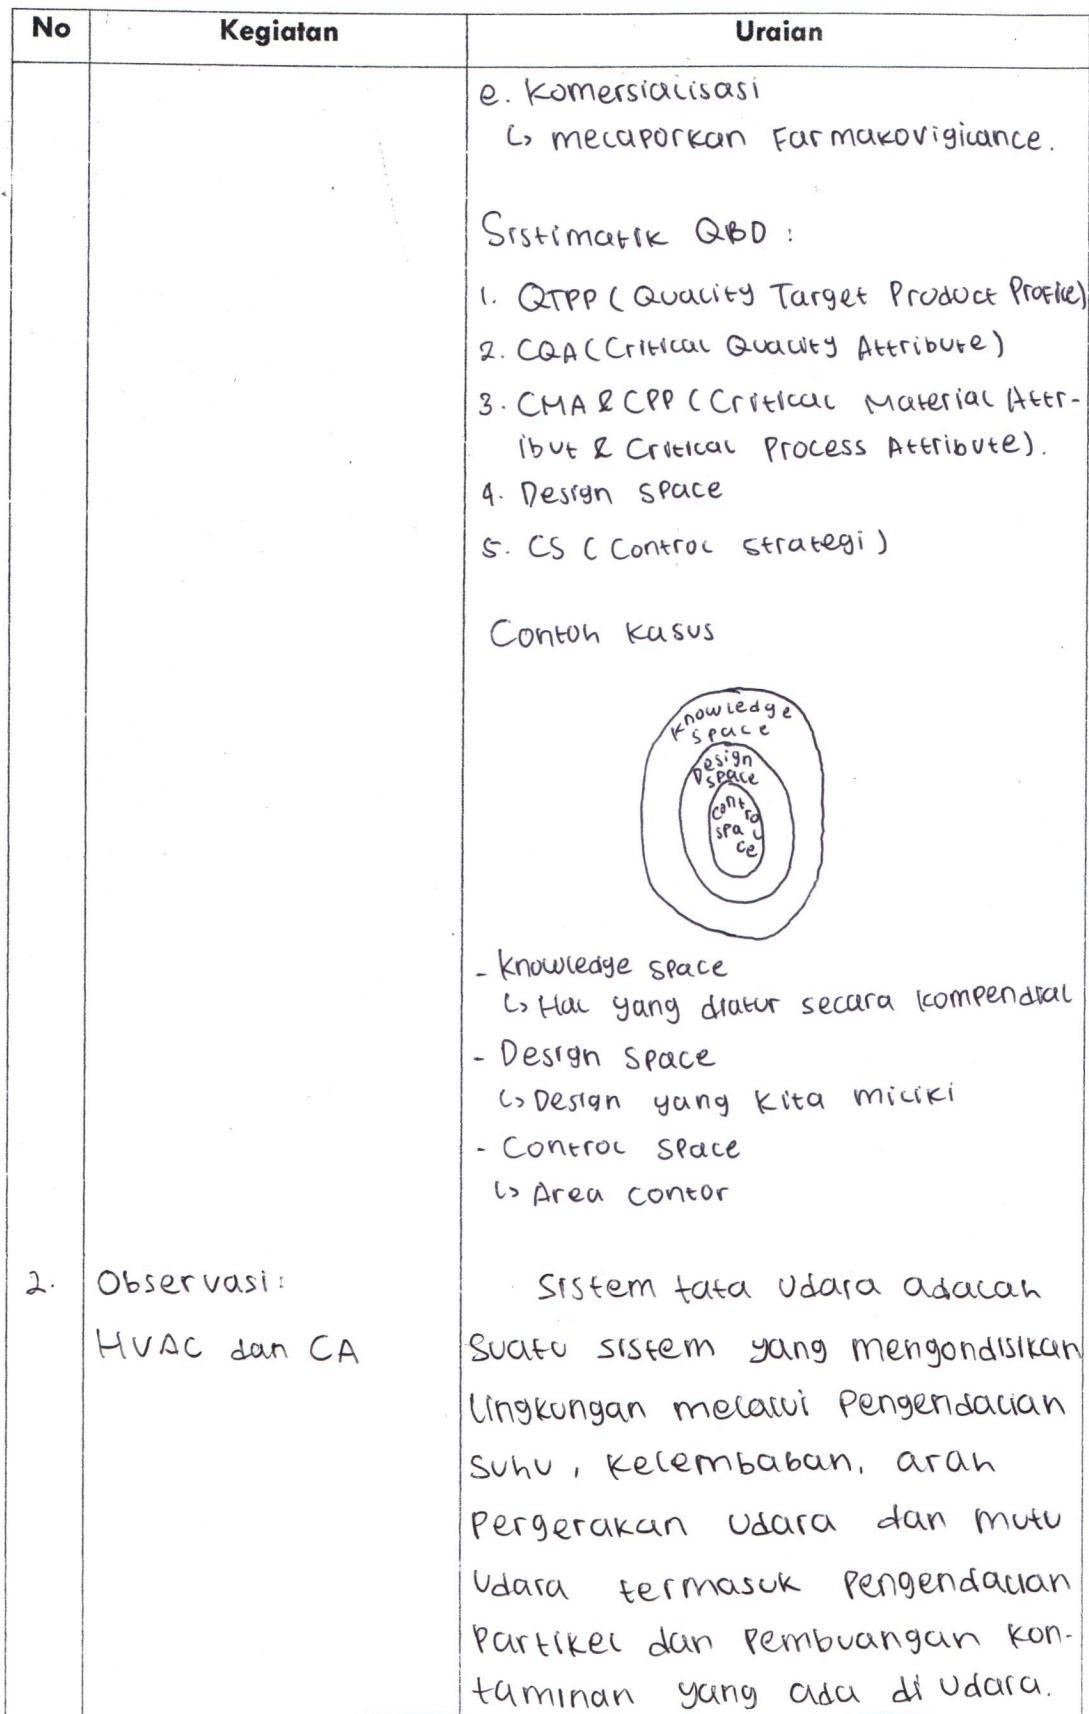 No Kegiatan Uraian
e. Komersialisasi
↳ melaporkan Farmakovigilance.
Sistimatik QBD :
1. QTPP (Quality Target Product Profile)
2. CQA (Critical Quality Attribute)
3. CMA & CPP (Critical Material Attr-
ibut & Critical Process Attribute).
4. Design space
5. CS (Control strategi)
Contoh kasus
Knowledge
space
Design
space
Contro
spa l
ce
- Knowledge space
↳ Hal yang diatur secara kompendial
- Design Space
↳ Design yang kita miliki
- Control space
↳ Area contor
2. Observasi: Sistem tata udara adalah
HVAC dan CA suatu sistem yang mengondisikan
lingkungan melalui pengendalian
suhu, kelembaban, arah
pergerakan udara dan mutu
udara termasuk pengendalian
partikel dan pembuangan kon-
taminan yang ada di udara.